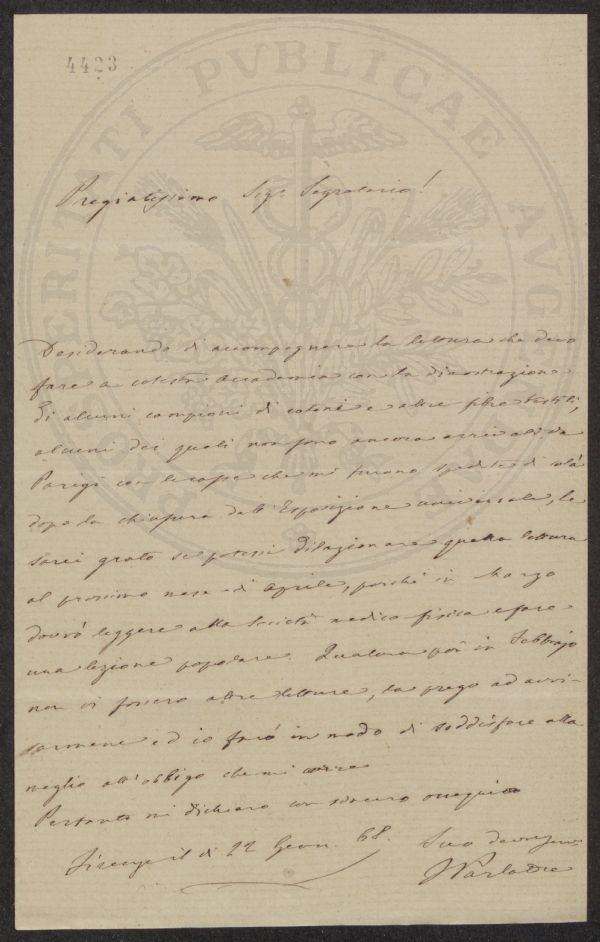 4423
PROSPERITATI PVBLICAE AVGENDAE
Pregiatissimo Sigr. Segretario!
Desiderando di accompagnare la lettura che devo
fare a cotesta Accademia con la dimostrazione
di alcuni campioni di cotone e altre fibre tessili,
alcuni dei quali non sono ancora arrivati da
Parigi con le casse che mi furono spedite di colà
dopo la chiusura dell'Esposizione universale, le
sarei grato se potessi dilazionare quella lettura
al prossimo mese di Aprile, perchè in Marzo
dovrò leggere alla Società medico fisica e fare
una lezione popolare. Qualora poi in Febbrajo
non vi fossero altre letture, la prego ad avvi-
sarmene ed io farò in modo di soddisfare alla
meglio all'obbligo che mi corre
Pertanto mi dichiaro con sincero ossequio
Firenze il di 22 Genn. 68. Suo devmo
Parlatore